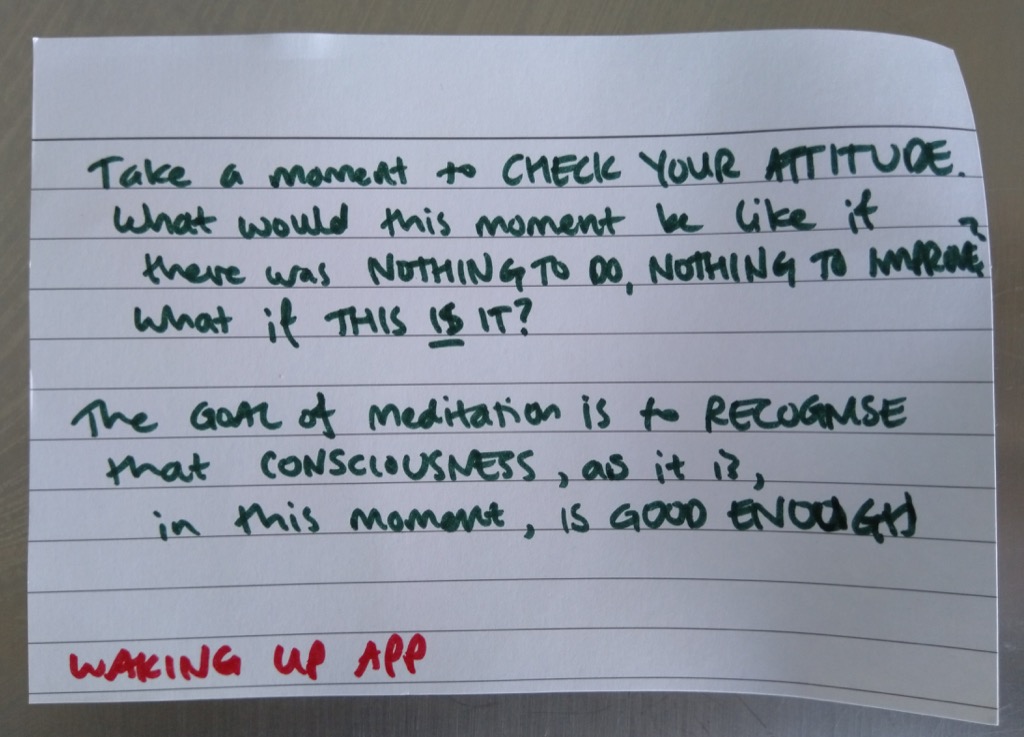 Take a moment to CHECK YOUR ATTITUDE.
What would this moment be like if
there was NOTHING TO DO, NOTHING TO IMPROVE?
What if THIS IS IT?
The GOAL of meditation is to RECOGNISE
that CONSCIOUSNESS, as it is,
in this moment, IS GOOD ENOUGH
WAKING UP APP